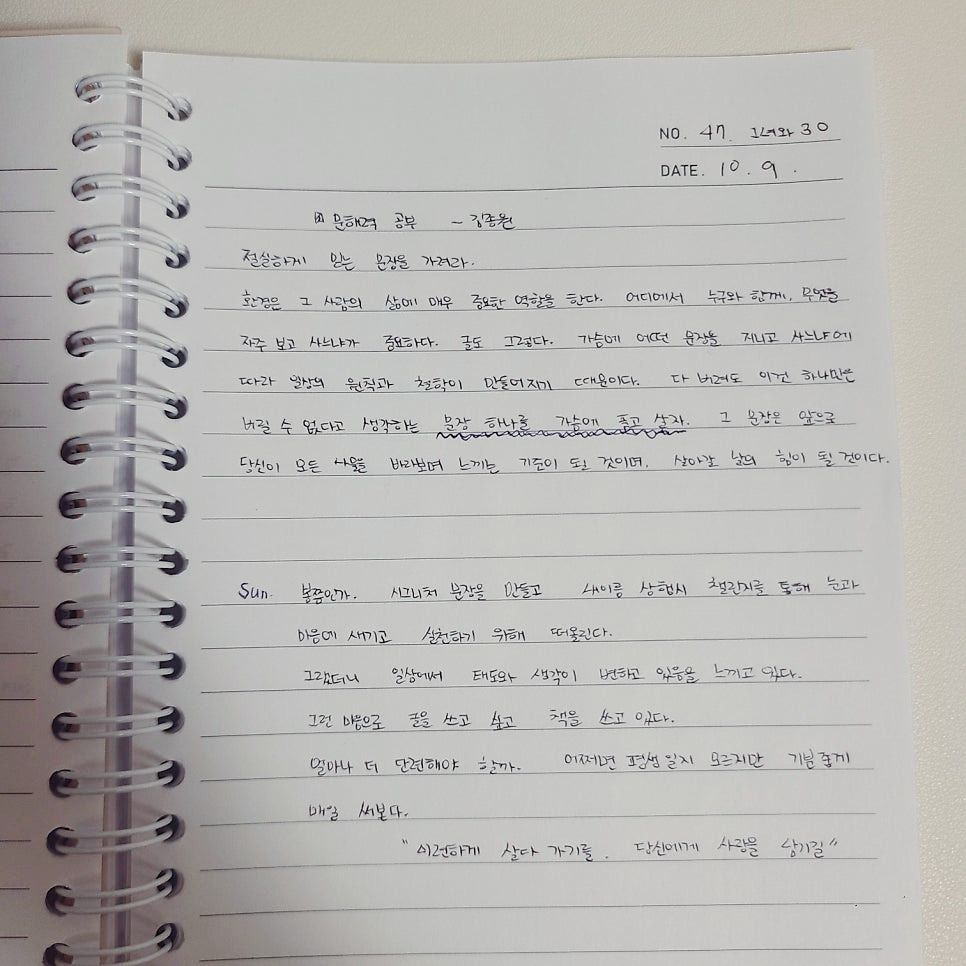 NO. 47. 그녀와 30
DATE. 10. 9.
문해력 공부 - 김종원
절실하게 믿는 문장을 가져라.
환경은 그 사람의 삶에 매우 중요한 역할을 한다. 어디에서 누구와 함께, 무엇을
자주 보고 사느냐가 중요하다. 글도 그렇다. 가슴에 어떤 문장을 지니고 사느냐에
따라 일상의 원칙과 철학이 만들어지기 때문이다. 다 버려도 이건 하나만은
버릴 수 없다고 생각하는 문장 하나를 가슴에 품고 살자. 그 문장은 앞으로
당신이 모든 사물을 바라보며 느끼는 기준이 될 것이며, 살아갈 날의 힘이 될 것이다.
Sun. 봄쯤인가. 시그니처 문장을 만들고 내이름 상협시 챌린지를 통해 눈과
마음에 새기고 실천하기 위해 떠올린다.
그랬더니 일상에서 태도와 생각이 변하고 있음을 느끼고 있다.
그런 마음으로 글을 쓰고 싶고 책을 쓰고 있다.
얼마나 더 단련해야 할까. 어쩌면 평생일지 모르지만 기분좋게
매일 써본다.
" 하게 살다 가기를. 당신에게 사랑을 남기길"